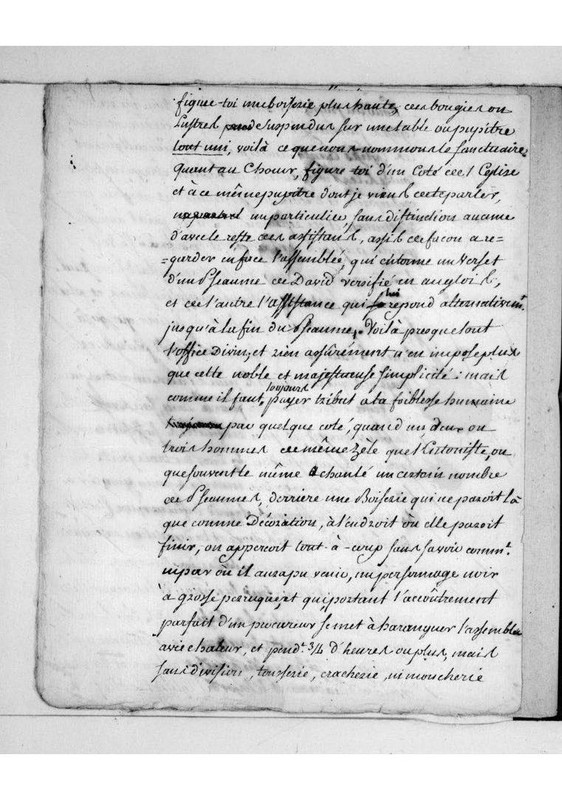 figure-toi une boiserie plus haute, des bougies ou
Lustres suspendus sur une table ou pupitre
tout uni, voilà ce que nous nommons le sanctuaire,
quant au Choeur, figure toi d'un Coté de l'Eglise
et à ce même pupitre dont je viens de te parler,
un particulier, sans distinction aucune
d'avec le reste des assistans, assis de façon a re-
=garder en face l'assemblée, qui entonne un verset
d'un Pseaume de David versifié en anglois,
et de l'autre l'assistance qui lui repond alternativemt.
jusqu'à la fin du Pseaume. Voilà presque tout
l'office Divin, et rien assûrément n'en impose plus
que cette noble et majestueuse simplicité: mais
comme il faut toujours payer tribut a la foiblesse humaine
par quelque coté, quand un deux ou
trois hommes de même Zèle que l'Entoniste, ou
que souvent le même a chanté un certain nombre
de Pseaumes, derriere une Boiserie qui ne paroit là
que comme Décoration, à l'endroit où elle paroit
finir, on apperçoit tout-à-coup sans savoir commt.
ni par où il aura pu venir, un personnage noir
à grosse perruque, et qui portant l'accoûtrement
parfait d'un procureur se met à haranguer l'assemblée
avec chaleur, et pendt. 3/4 d'heures ou plus, mais
sans division, tousserie, cracherie, ni moucherie